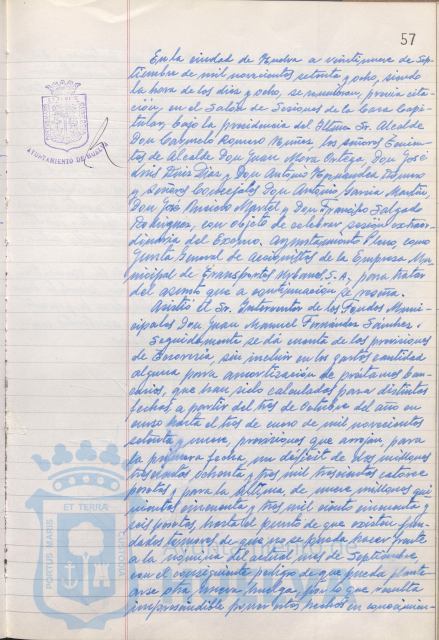 57
En la ciudad de Huelva a veintinueve de Sep-
tiembre de mil novecientos setenta y ocho, siendo
la hora de las diez y ocho, se reunieron, previa cita-
ción, en el Salón de Sesiones de la Casa Capi-
tular, bajo la presidencia del Iltmo. Sr. Alcalde
Don Carmelo Romero Núñez, los señores Tenien-
tes de Alcalde Don Juan Mora Ortega, Don José
Luis Ruiz Díaz y Don Antonio Hernández Romero
y Señores Concejales Don Antonio García Martín,
Don José Martel y Don Francisco Salgado
Rodríguez, con objeto de celebrar sesión extraor-
dinaria del Excmo. Ayuntamiento Pleno como
Junta General de Accionistas de la Empresa Mu-
nicipal de Transportes Urbanos S.A, para tratar
del asunto que a continuación se reseña.
Asistió el Sr. Interventor de los Fondos Muni-
cipales Don Juan Manuel Fernández Sánchez.
Seguidamente se da cuenta de las previsiones
de Tesorería, sin incluir en los gastos cantidad
alguna para amortización de préstamos ban-
carios, que han sido calculadas para distintas
fechas a partir del tres de Octubre del año en
curso hasta el tres de enero de mil novecientos
setenta y nueve, previsiones que arrojan, para
la primera fecha, un déficit de dos millones
trescientas ochenta y tres mil trescientas catorce
pesetas y para la última de nueve millones qui-
nientas cincuenta y tres mil ciento cincuenta y
seis pesetas, hasta el punto de que existen fun-
dados temores de que no se pueda hacer frente
a la nómina del actual mes de Septiembre
con el consiguiente peligro de que pueda plante-
arse otra nueva huelga, por lo que resulta
imprescindible poner estos hechos en conocimien-
AYUNTAMIENTO DE HUELVA
PORTUS MARIS
ET TERRA
CUSTODIA